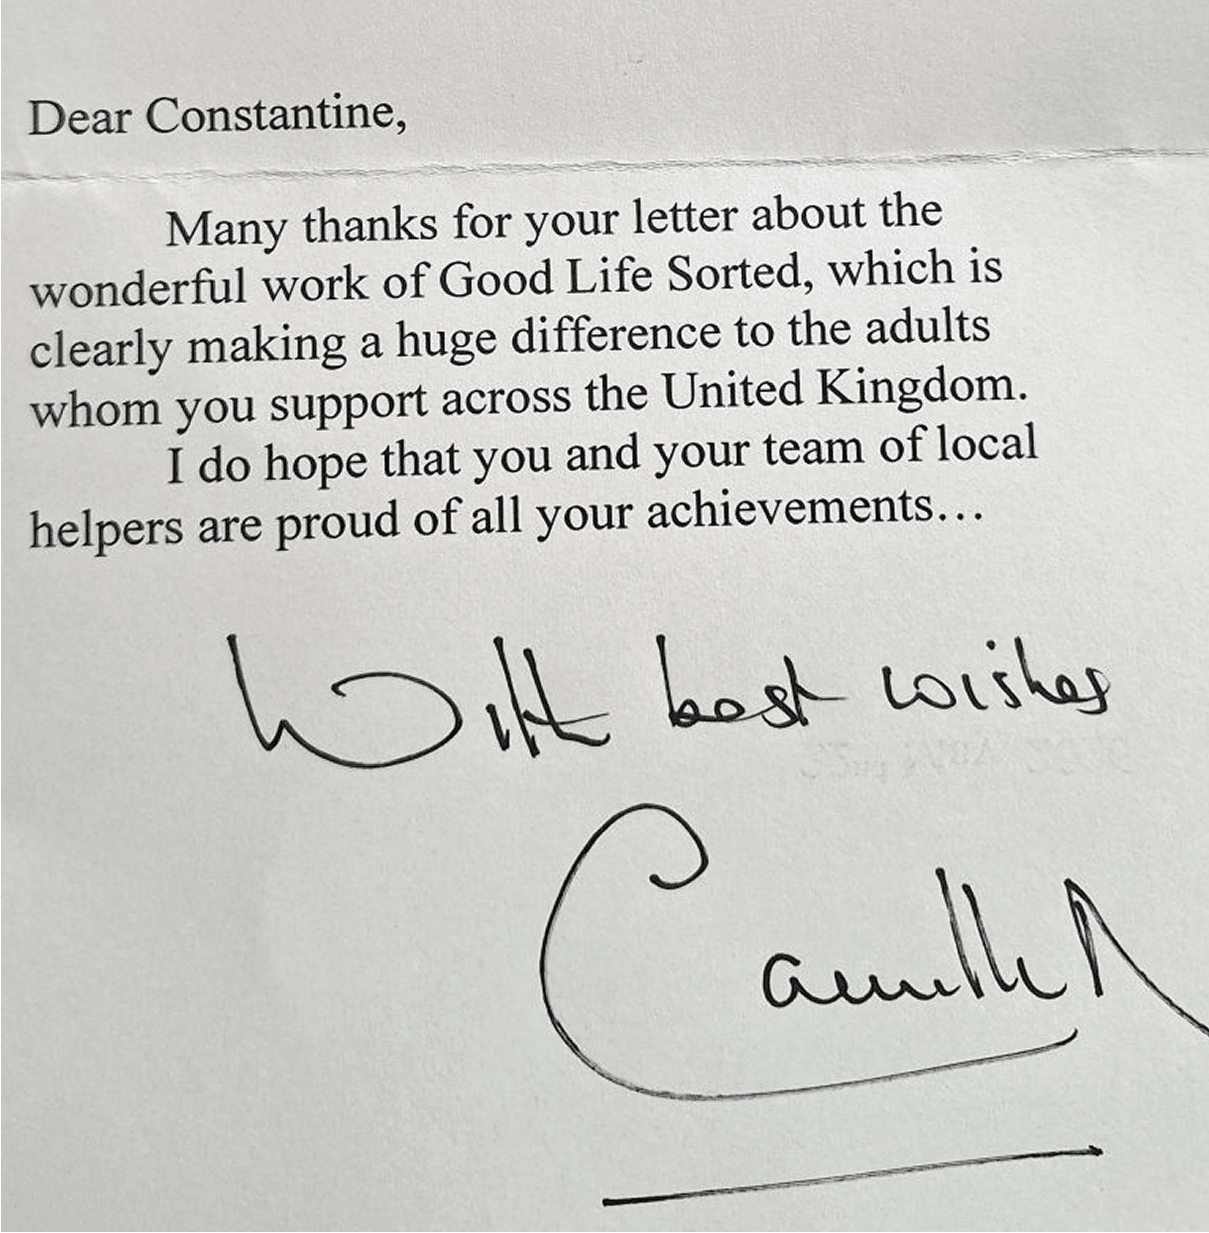 Dear Constantine,
Many thanks for your letter about the
wonderful work of Good Life Sorted, which is
clearly making a huge difference to the adults
whom you support across the United Kingdom.
I do hope that you and your team of local
helpers are proud of all your achievements…
With best wishes
Camilla